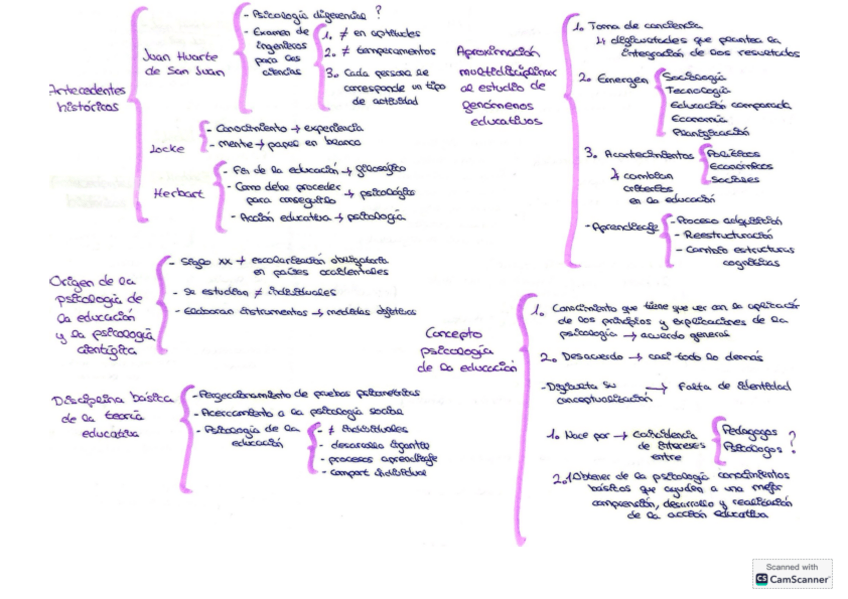 Antecedentes
históricos
Juan Huarte
de San Juan
- Psicología diferencial ?
- Examen de
ingenieros
para las
ciencias
1. ≠ en aptitudes
2. ≠ temperamentos
3. Cada persona le
corresponde un tipo
de actividad
Locke
- Conocimiento → experiencia
- mente → papel en blanco
Herbart
- Fin de la educación → filosófico
- Como debe proceder
para conseguirlo → psicológico
- Acción educativa → psicología
Origen de la
psicología de
la educación
y la psicología
científica
- Siglo XX → escolarización obligatoria
en países occidentales
- Se estudian ≠ individuales
- Elaboran instrumentos → medidas objetivas
Disciplina básica
de la teoría
educativa
- Perfeccionamiento de pruebas psicométricas
- Acercamiento a la psicología social
- Psicología de la
educación
- ≠ individuales
- desarrollo
- procesos aprendizaje
- comport individual
Aproximación
multidisciplinar
al estudio de
fenómenos
educativos
1. Toma de conciencia
↳ dificultades que plantea la
integración de los resultados
2. Emergen
Sociología
Tecnología
Educación comparada
Economía
Planificación
3. Acontecimientos
↳ cambian
criterios
en la educación
Políticos
Económicos
Sociales
- Aprendizaje
- Proceso adquisición
- Reestructuración
- Cambio estructuras
cognitivas
Concepto
psicología
de la educación
1. Conocimiento que tiene que ver con la aplicación
de los principios y explicaciones de la
psicología → acuerdo general
2. Desacuerdo → casi todo lo demás
- Dificulta su
conceptualización → Falta de identidad
1. Nace por → Coincidencia
de intereses
entre
Pedagogos
Psicólogos ?
2. Obtener de la psicología conocimientos
básicos que ayuden a una mejor
comprensión, desarrollo y realización
de la acción educativa
Scanned with
CS CamScanner